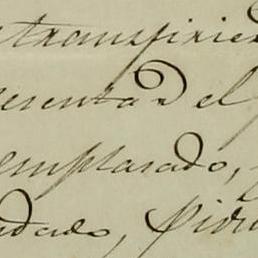 transfirien
resentad el
emplasado,
ndado, Pidi